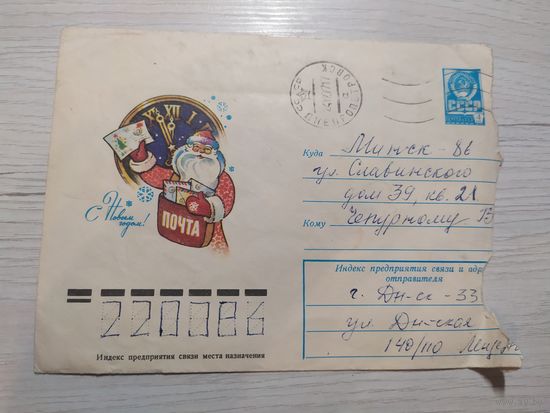 XII
I
ПОЧТА
С Новым
годом!
СССР
4
Куда Минск-86
ул. Славинского
дом 39, кв. 21
Кому Чепурному
Индекс предприятия связи и адр
отправителя
г. Дн-ск-33
ул.
140/110
220086
Индекс предприятия связи места назначения